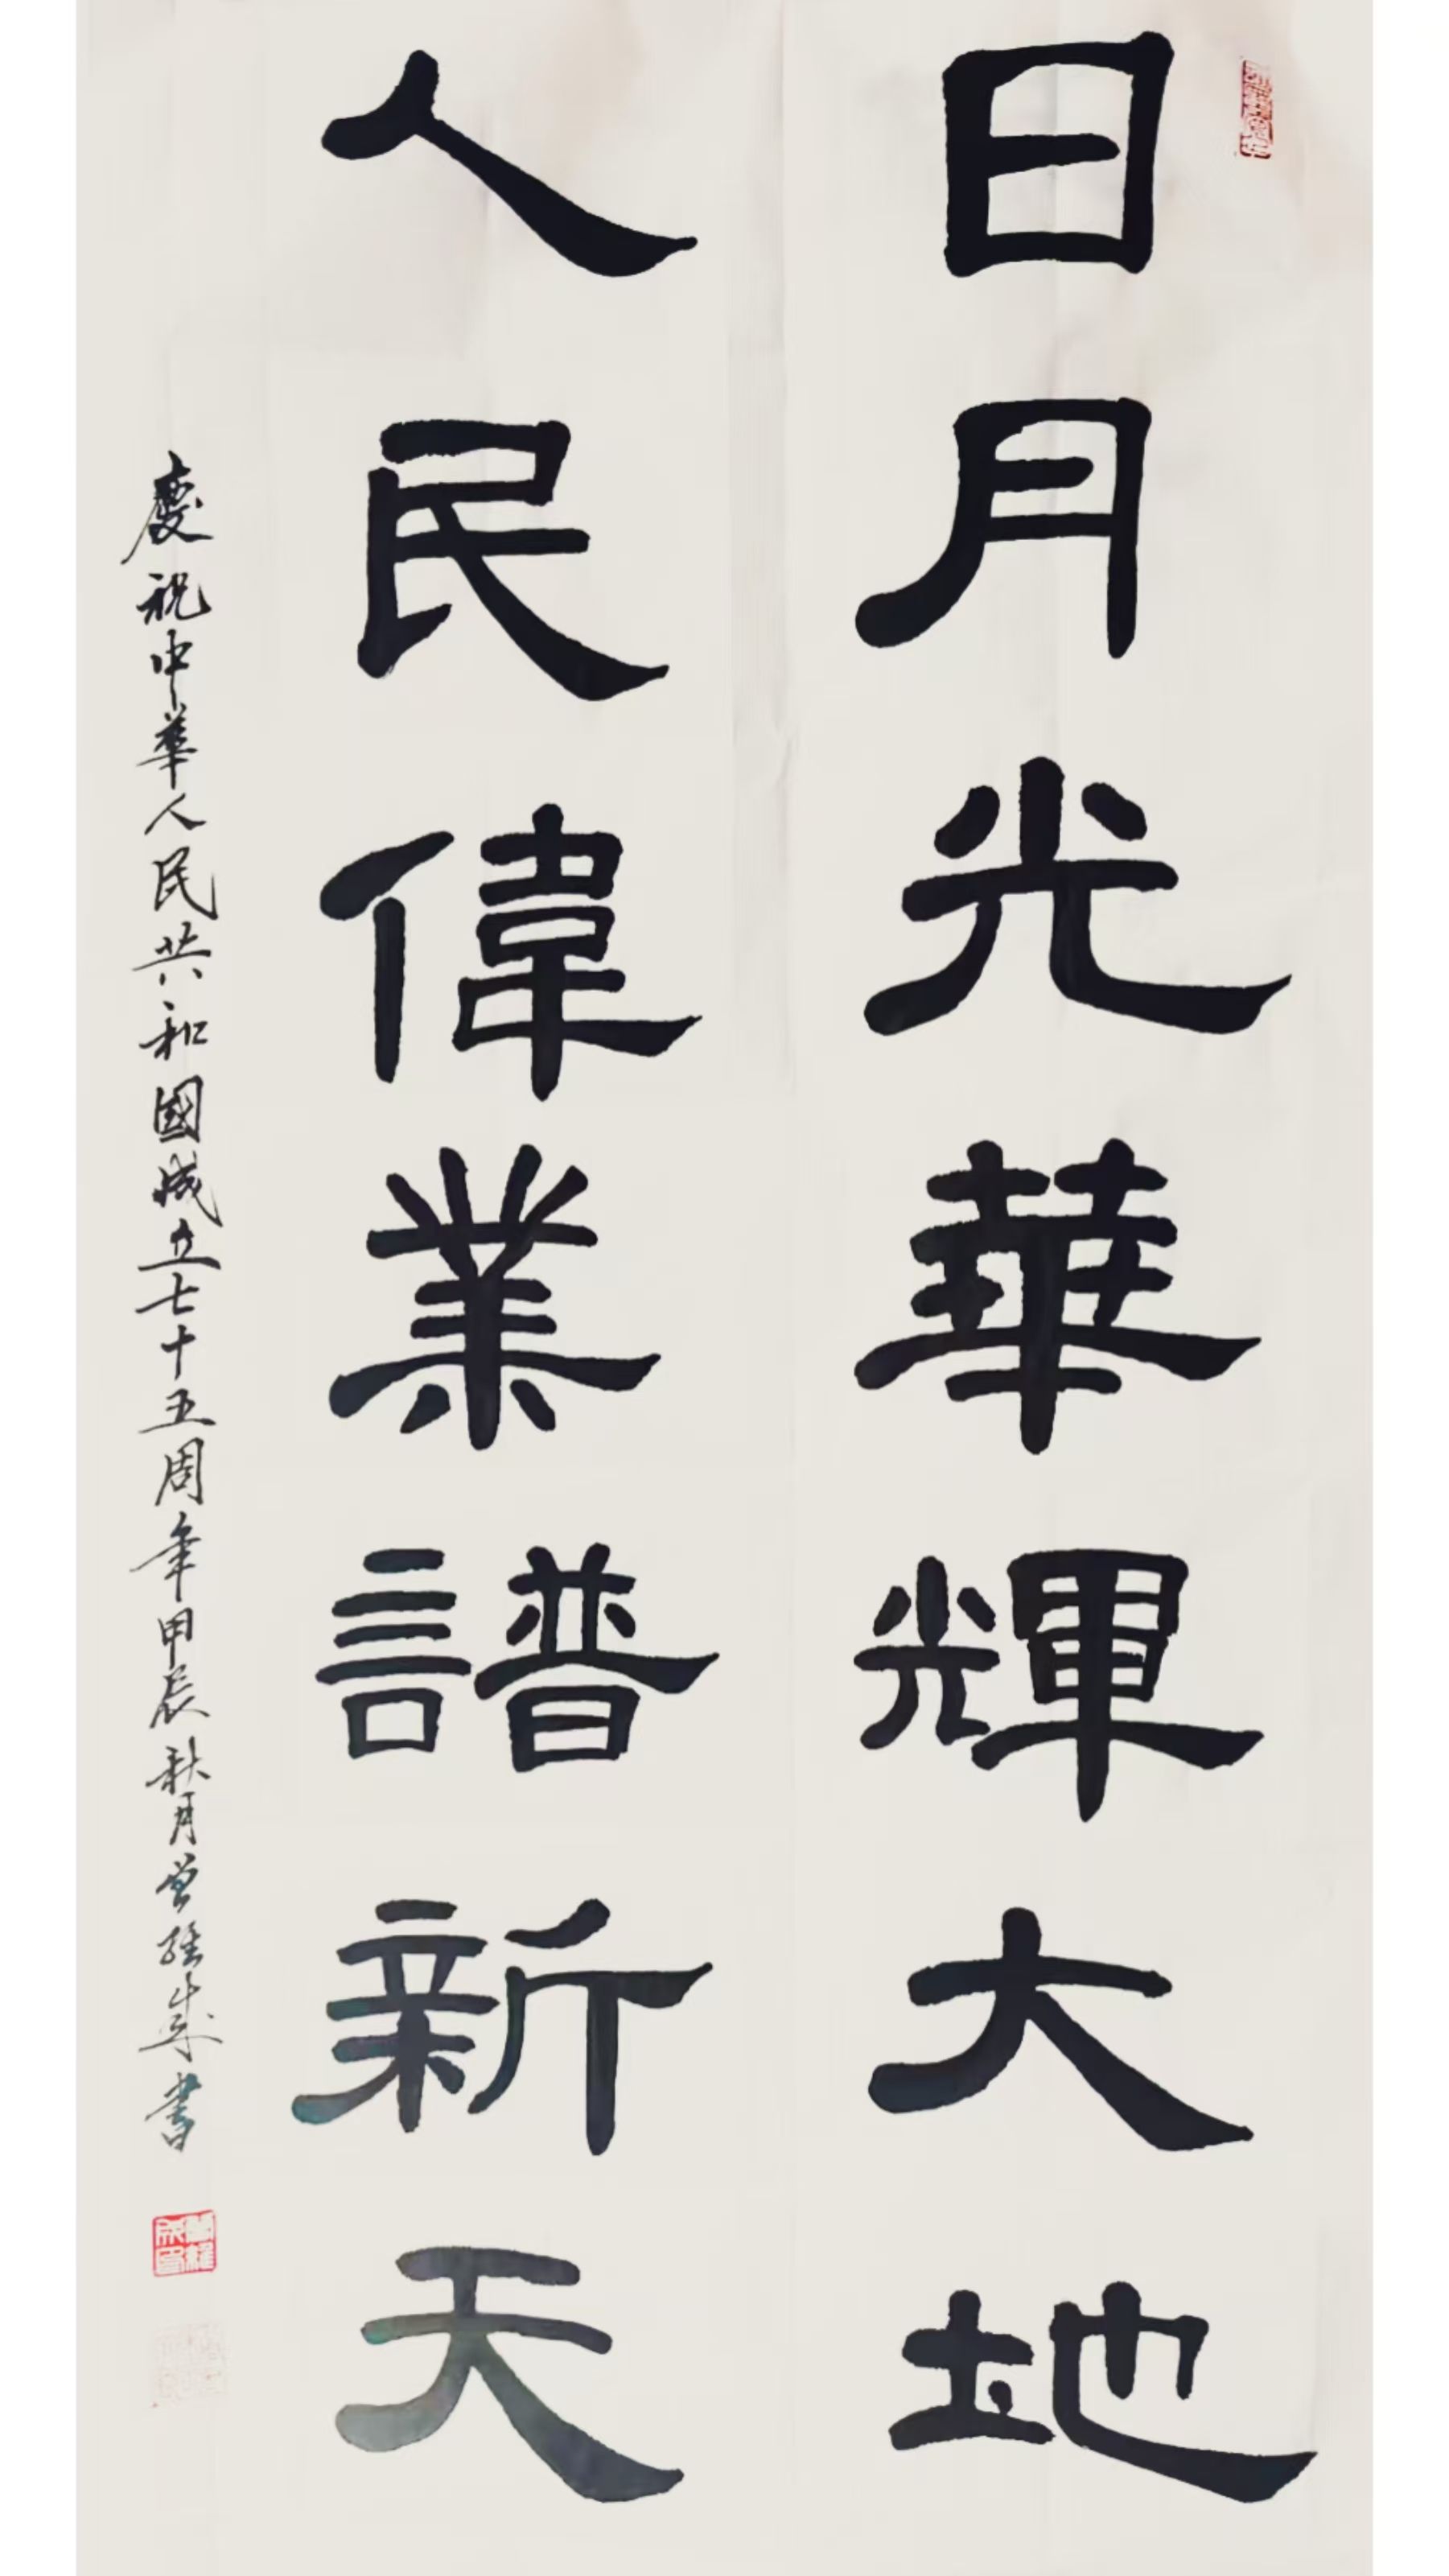 日月光華輝大地
人民偉業譜新天
慶祝中華人民共和國成立七十五周年甲辰秋月曾維成書